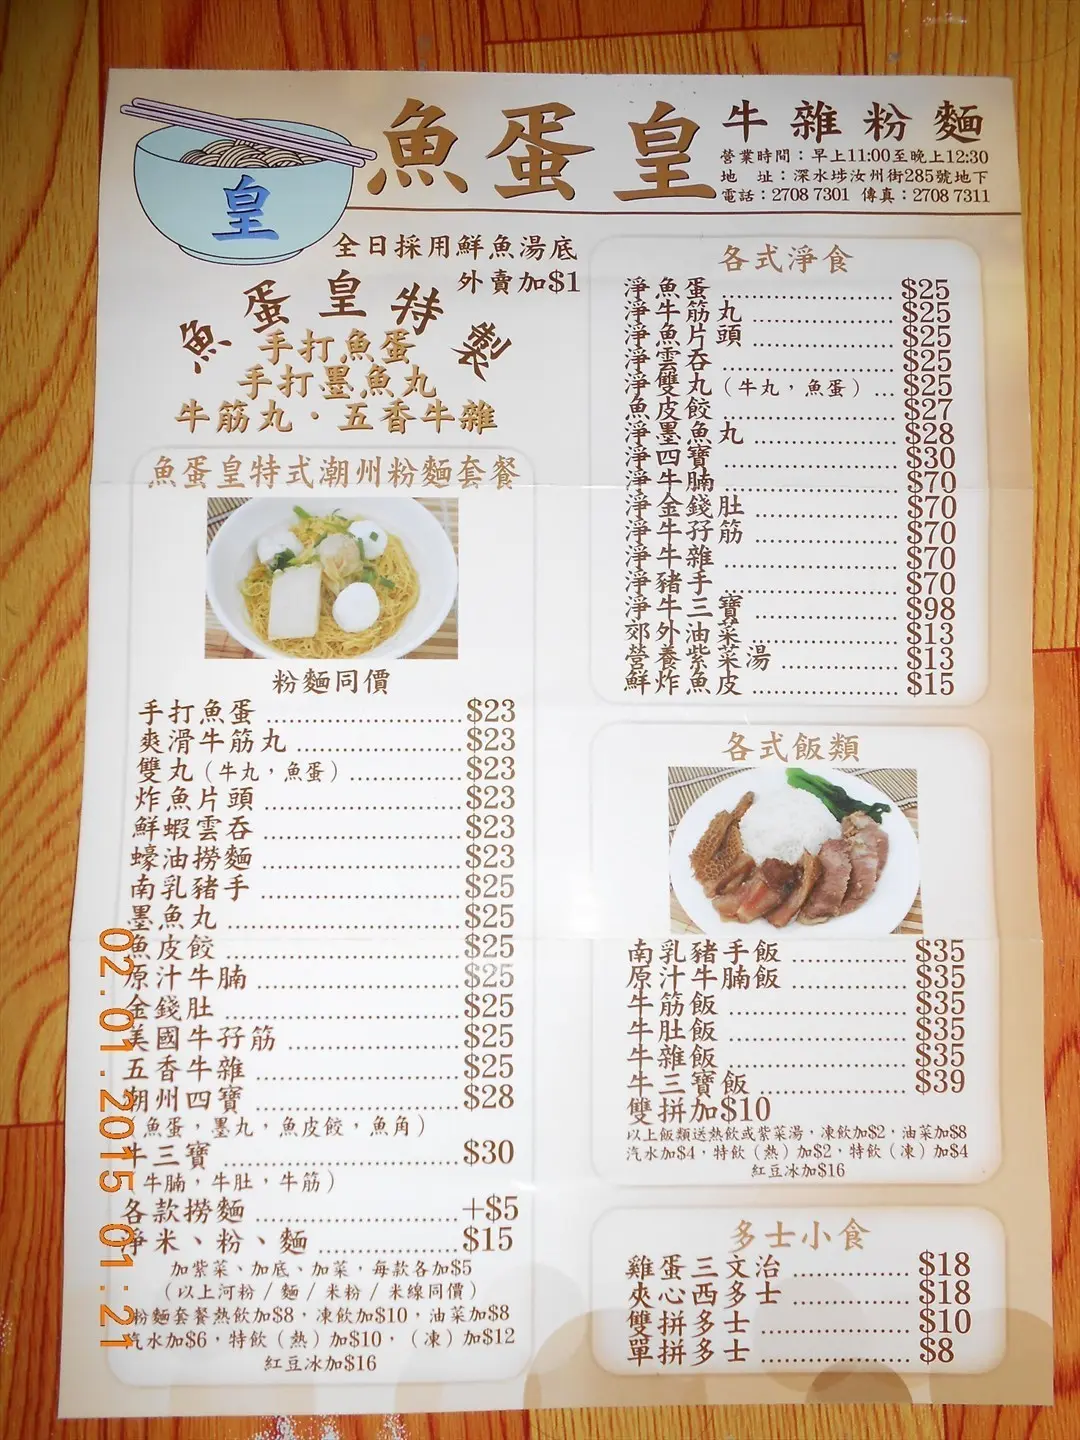 皇
魚蛋皇
牛雜粉麵
營業時間：早上11:00至晚上12:30
地　址：深水埗汝州街285號地下
電話：2708 7301 傳真：2708 7311
全日採用鮮魚湯底
外賣加$1
魚蛋皇特製
手打魚蛋
手打墨魚丸
牛筋丸．五香牛雜
魚蛋皇特式潮州粉麵套餐
粉麵同價
手打魚蛋 ............ $23
爽滑牛筋丸 ............ $23
雙丸（牛丸，魚蛋） ............ $23
炸魚片頭 ............ $23
鮮蝦雲吞 ............ $23
蠔油撈麵 ............ $23
南乳豬手 ............ $25
墨魚丸 ............ $25
魚皮餃 ............ $25
原汁牛腩 ............ $25
金錢肚 ............ $25
美國牛孖筋 ............ $25
五香牛雜 ............ $25
潮州四寶 ............ $28
（魚蛋，墨丸，魚皮餃，魚角）
牛三寶 ............ $30
（牛腩，牛肚，牛筋）
各款撈麵 ............ +$5
淨米、粉、麵 ............ $15
加紫菜、加底、加菜，每款各加$5
（以上河粉/麵/米粉/米線同價）
粉麵套餐熱飲加$8，凍飲加$10，油菜加$8
汽水加$6，特飲（熱）加$10，（凍）加$12
紅豆冰加$16
各式淨食
淨魚蛋 ............ $25
淨牛筋丸 ............ $25
淨魚片頭 ............ $25
淨雲吞 ............ $25
淨雙丸（牛丸，魚蛋） ... $25
魚皮餃 ............ $27
淨墨魚丸 ............ $28
淨四寶 ............ $30
淨牛腩 ............ $70
淨金錢肚 ............ $70
淨牛孖筋 ............ $70
淨牛雜 ............ $70
淨豬手 ............ $70
淨牛三寶 ............ $98
郊外油菜 ............ $13
營養紫菜湯 ............ $13
鮮炸魚皮 ............ $15
各式飯類
南乳豬手飯 ............ $35
原汁牛腩飯 ............ $35
牛筋飯 ............ $35
牛肚飯 ............ $35
牛雜飯 ............ $35
牛三寶飯 ............ $39
雙拼加$10
以上飯類送熱飲或紫菜湯，凍飲加$2，油菜加$8
汽水加$4，特飲（熱）加$2，特飲（凍）加$4
紅豆冰加$16
多士小食
雞蛋三文治 ............ $18
夾心西多士 ............ $18
雙拼多士 ............ $10
單拼多士 ............ $8
02.01.2015 01:21